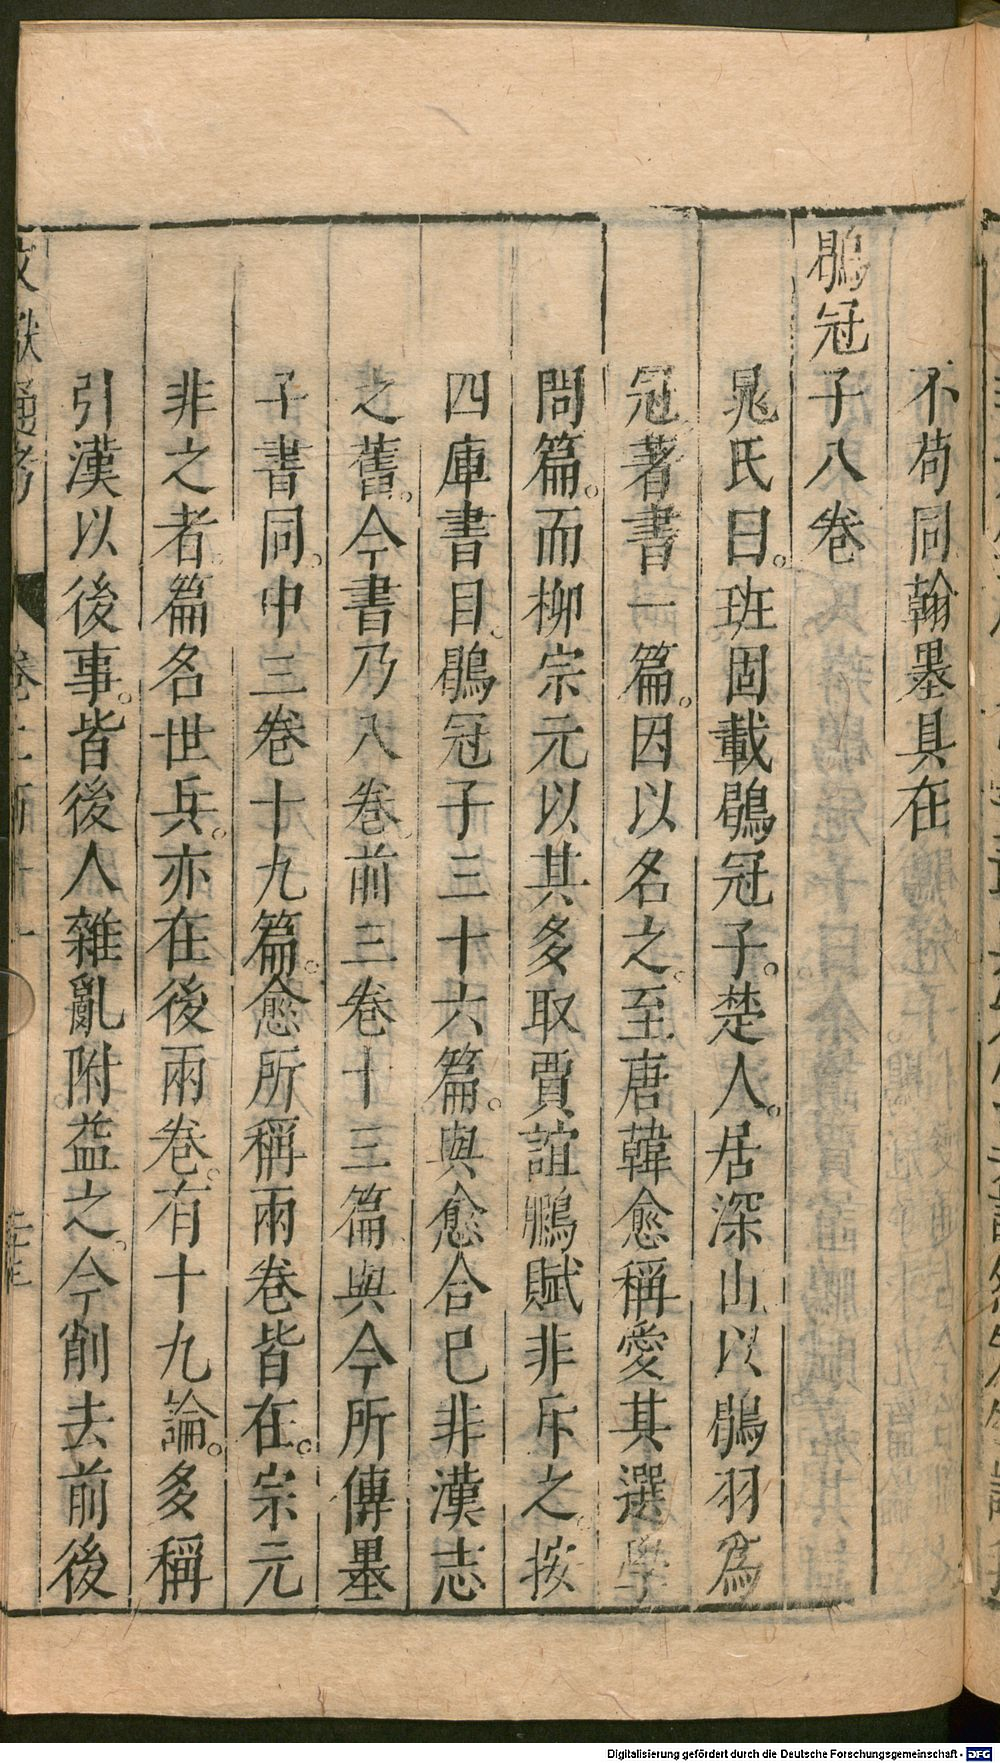 不苟同翰墨具在
鶡冠子八卷
晁氏曰。班固載鶡冠子。楚人。居深山以鶡羽為
冠著書一篇。因以名之。至唐韓愈稱愛其選學
問篇。而柳宗元以其多取賈誼鵩賦非斥之。按
四庫書目。鶡冠子三十六篇。與愈合已非漢志
之舊。今書乃八卷。前三卷十三篇與今所傳墨
子書同。中三卷十九篇。愈所稱兩卷皆在。宗元
非之者。篇名世兵。亦在後兩卷。有十九論。多稱
引漢以後事。皆後人雜亂附益之。今削去前後
文獻通考
Digitalisierung gefördert durch die Deutsche Forschungsgemeinschaft - DFG